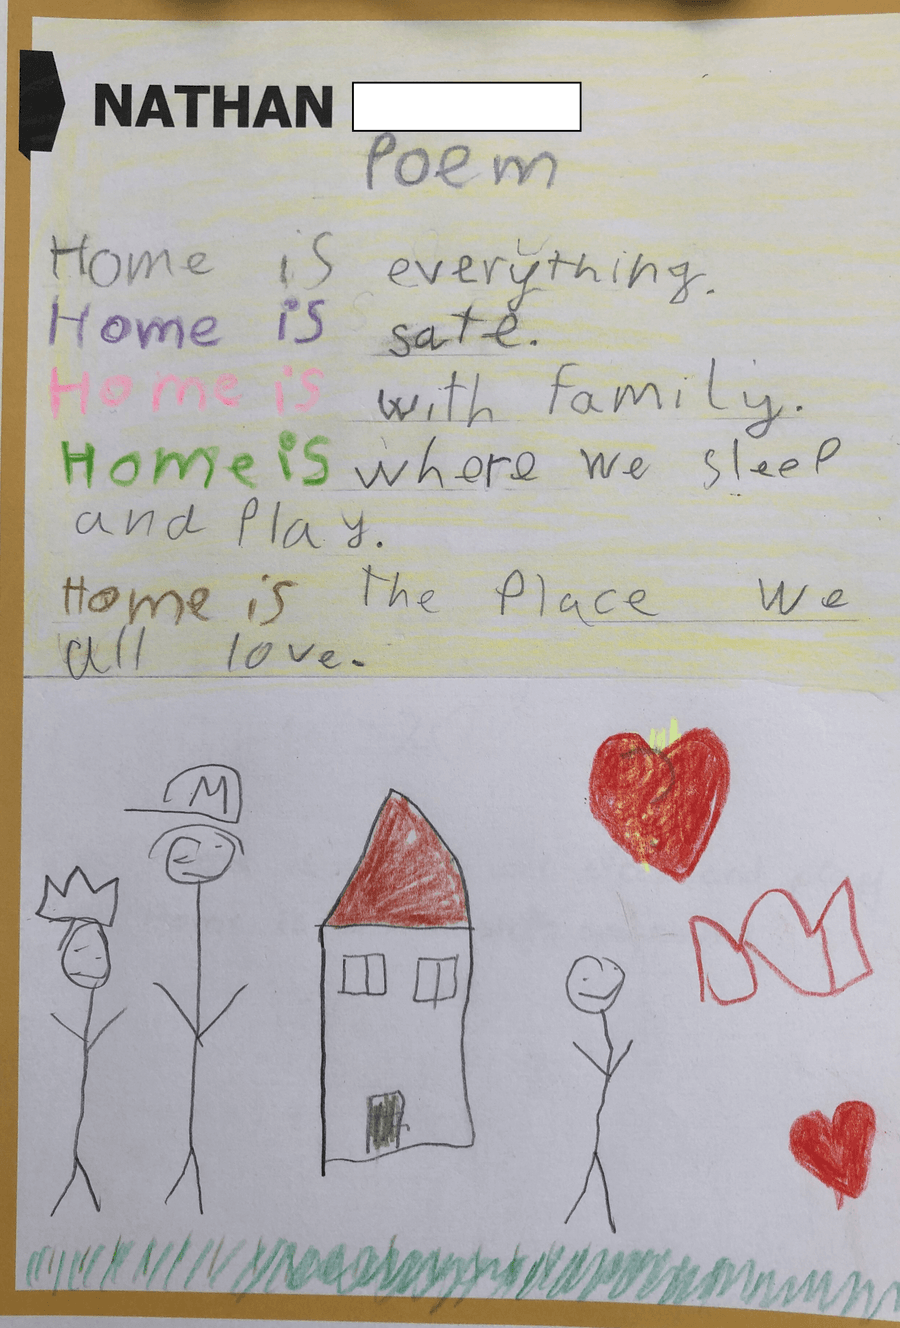 NATHAN
Poem
Home is everything.
Home is safe.
Home is with family.
Home is where we sleep
and Play.
Home is the Place we
all love.
M